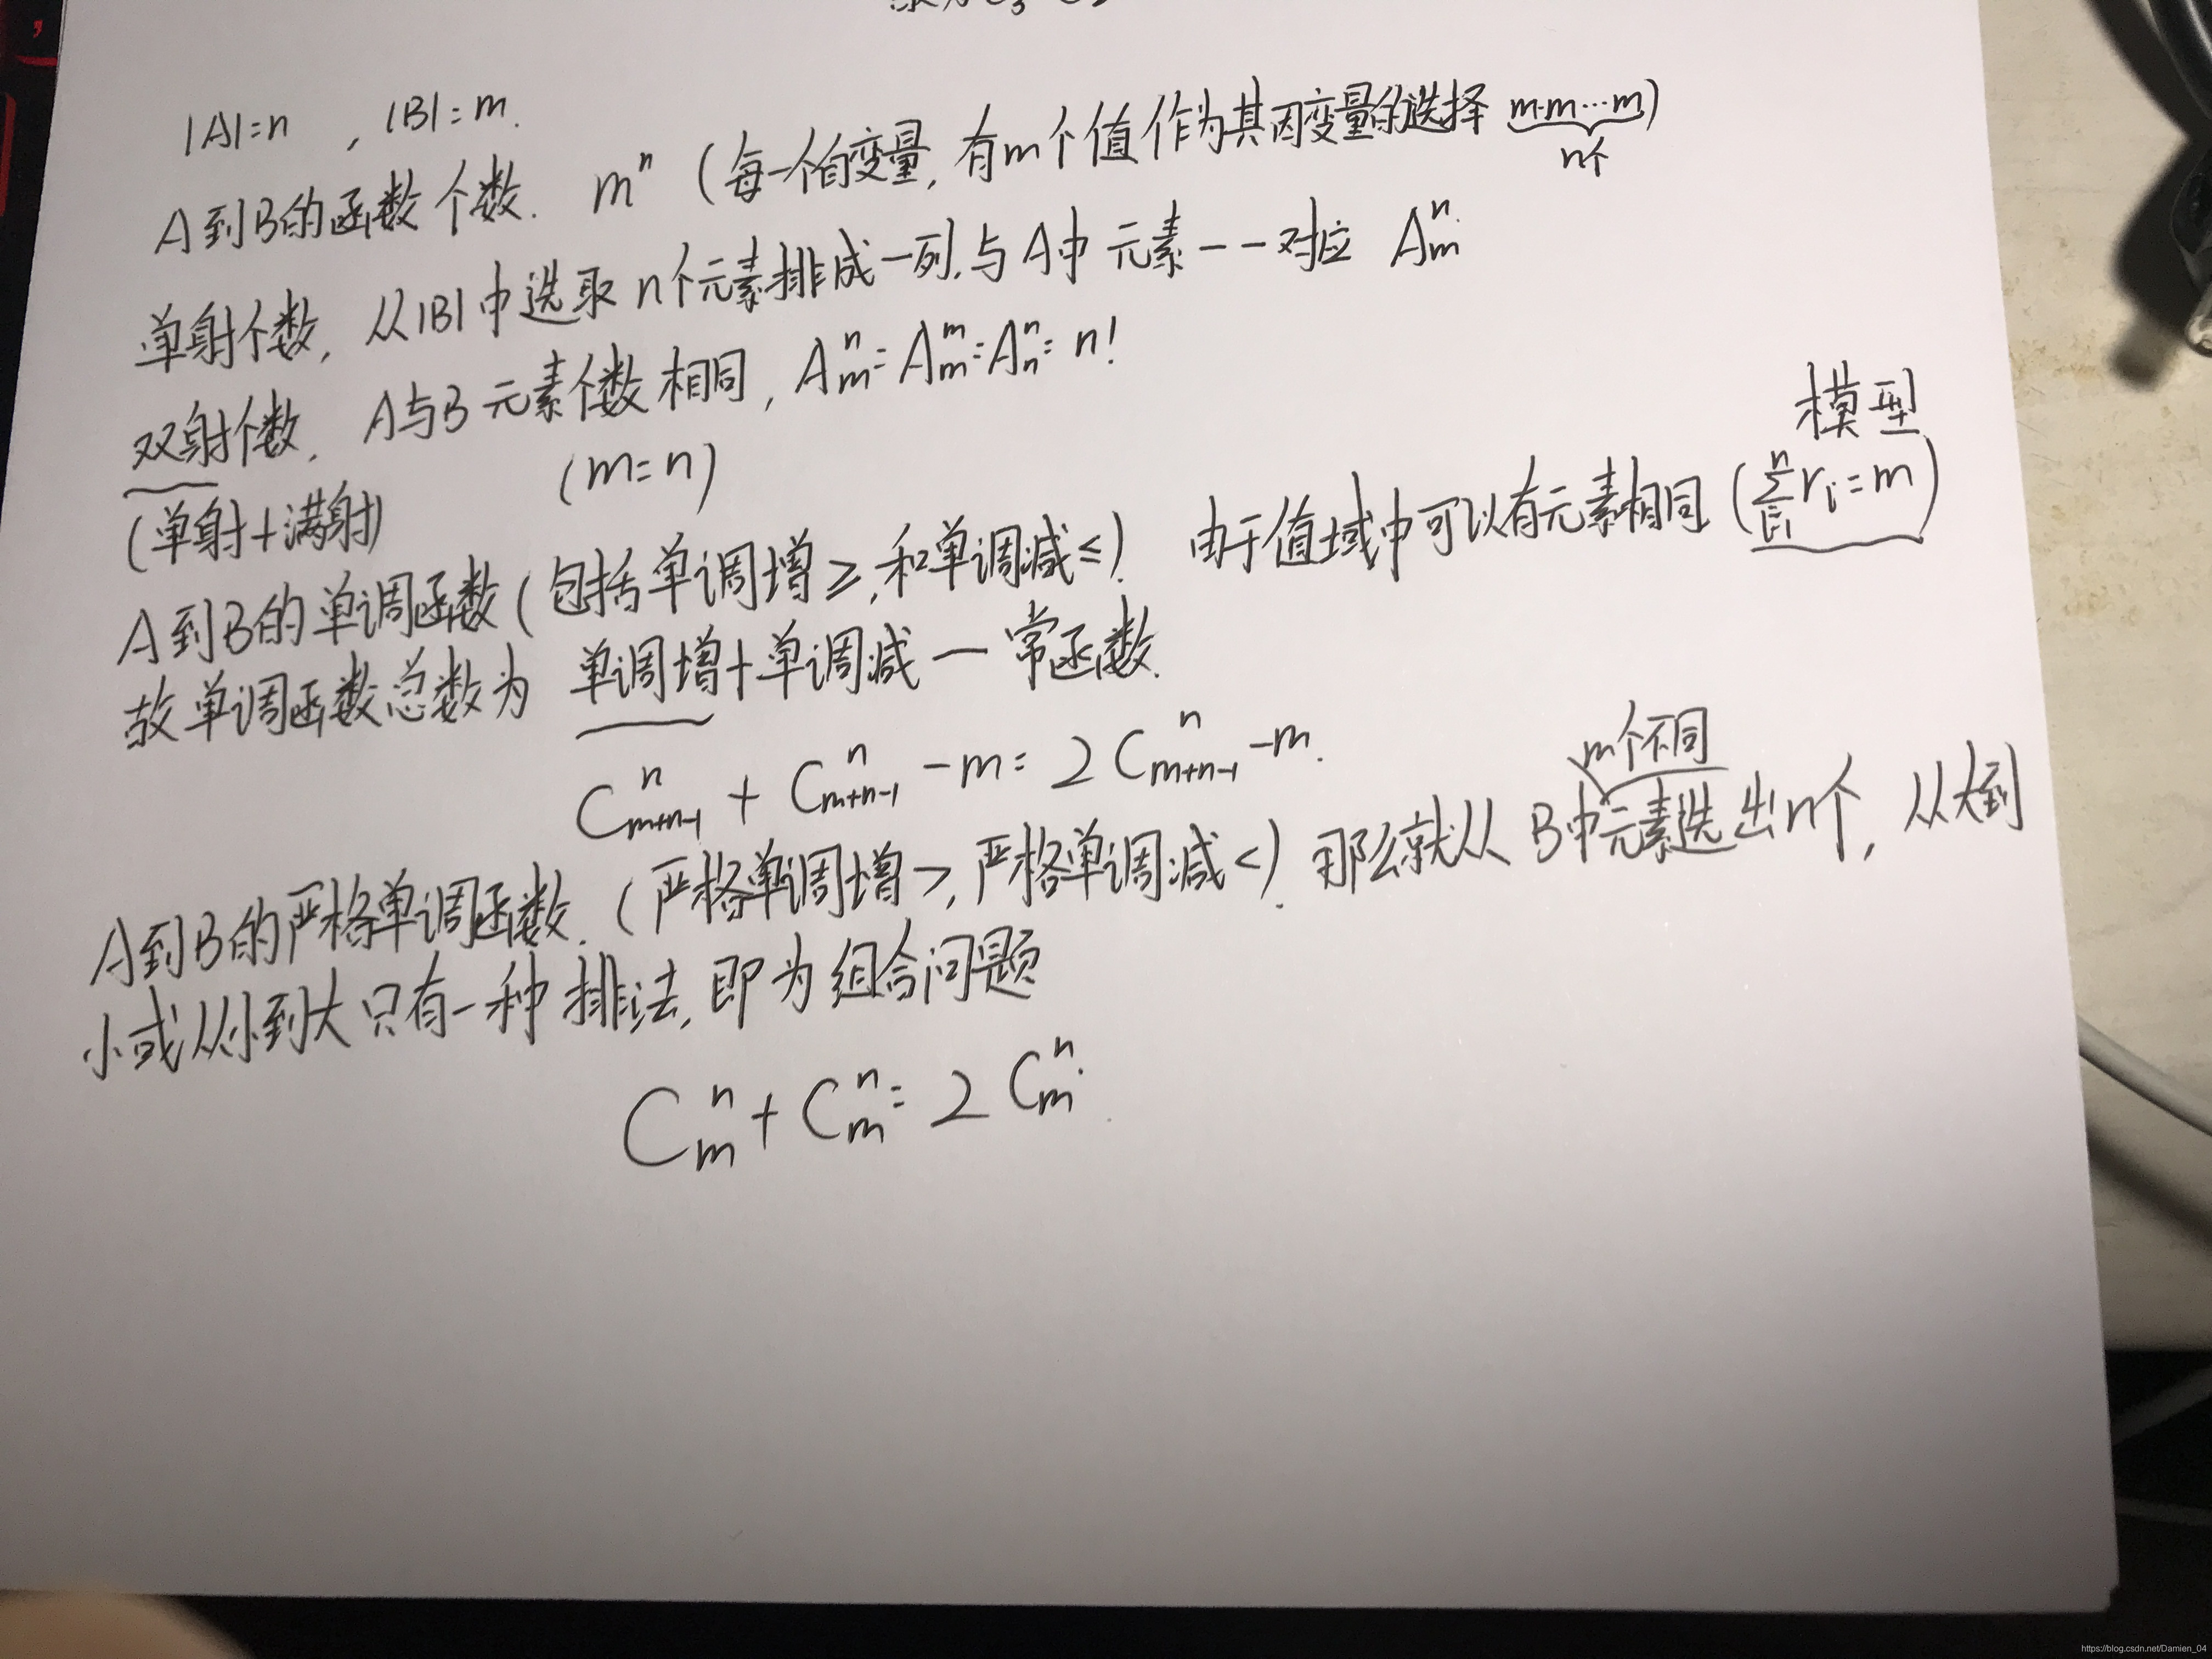 |A|=n , |B|=m.
A到B的函数个数. mⁿ (每一个自变量, 有m个值作为其因变量的选择 m·m···m)
n个
单射个数, 从|B|中选取n个元素排成一列,与A中元素一一对应 Aₘⁿ.
双射个数. A与B元素个数相同, Aₘⁿ=Aₘᵐ=Aₙⁿ=n!
(单射+满射) (m=n)
模型
A到B的单调函数(包括单调增≥,和单调减≤). 由于值域中可以有元素相同 (∑ⁿᵢ₌₁ rᵢ=m)
故单调函数总数为 单调增+单调减-常函数.
Cₘ₊ₙ₋₁ⁿ + Cₘ₊ₙ₋₁ⁿ -m= 2Cₘ₊ₙ₋₁ⁿ -m.
m个不同
A到B的严格单调函数. (严格单调增>,严格单调减<). 那么就从B中元素选出n个, 从大到
小或从小到大只有一种排法,即为组合问题
Cₘⁿ+Cₘⁿ=2Cₘⁿ.
https://blog.csdn.net/Damien_04